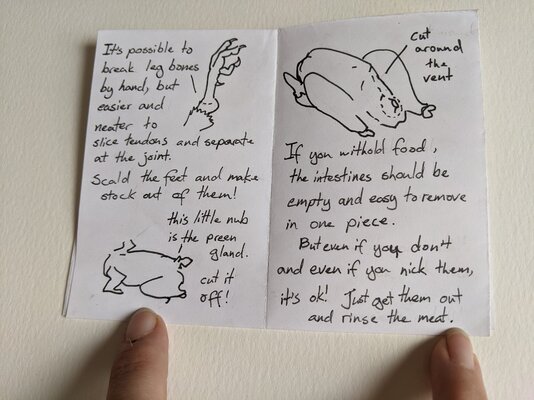 It's possible to
break leg bones
by hand, but
easier and
neater to
slice tendons and separate
at the joint.
Scald the feet and make
stock out of them!
this little nub
is the preen
gland.
cut it
off!
cut
around
the
vent
If you withold food,
the intestines should be
empty and easy to remove
in one piece.
But even if you don't
and even if you nick them,
it's ok! Just get them out
and rinse the meat.